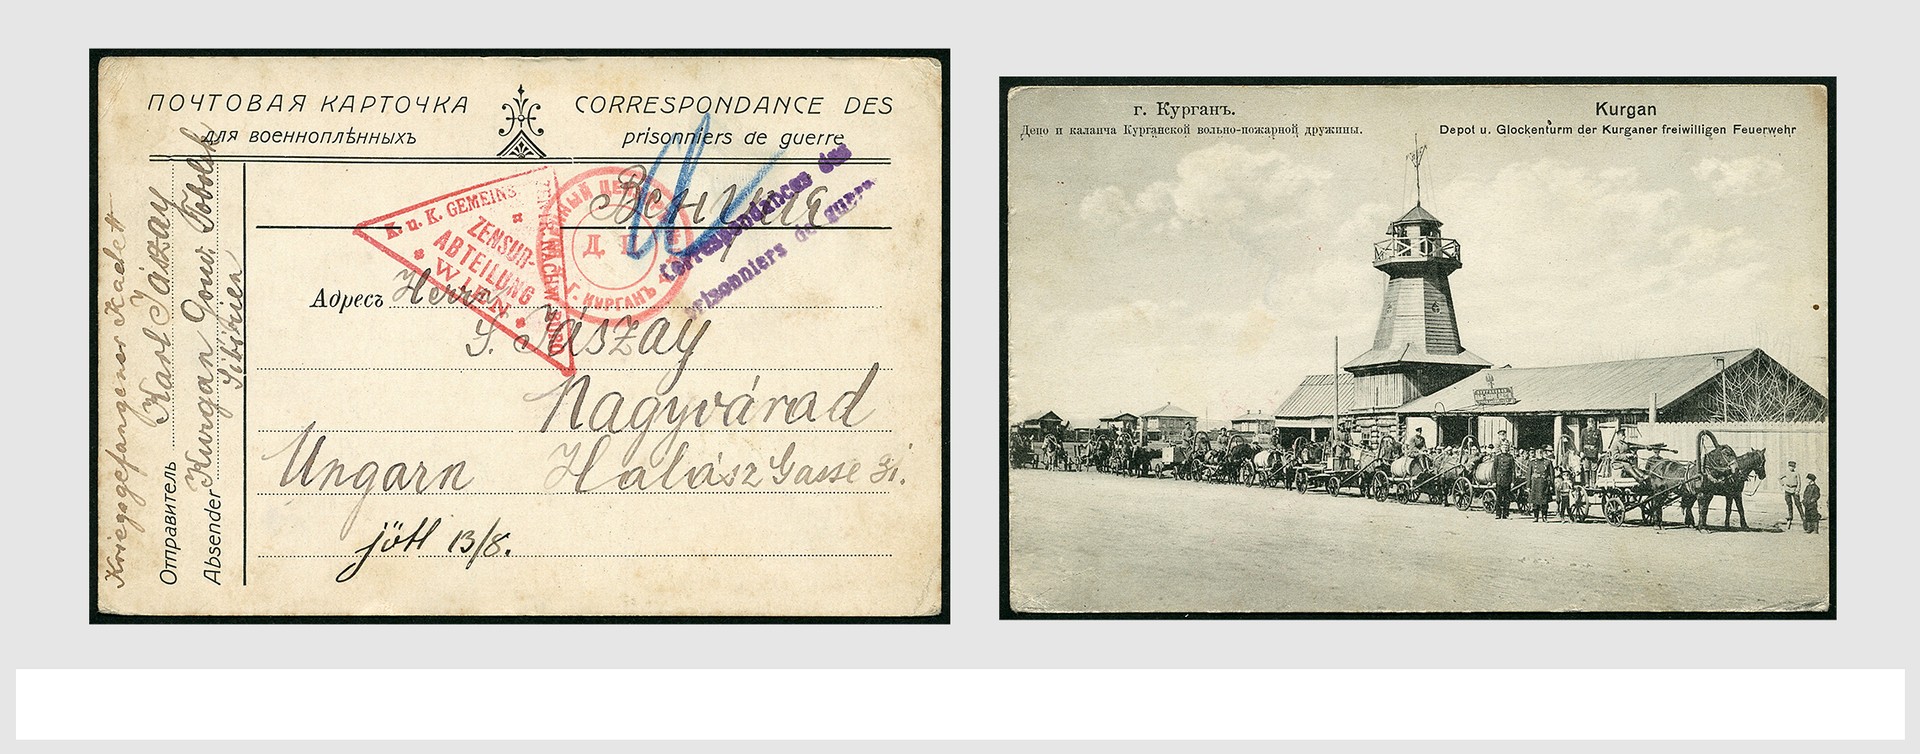 ПОЧТОВАЯ КАРТОЧКА
для военноплѣнныхъ
CORRESPONDANCE DES
prisonniers de guerre
Correspondances des
prisonniers de guerre
K. u. K. GEMEINS
ZENSUR-
ABTEILUNG
WIEN
Г. КУРГАНЪ
Адресъ Herrn
S. Jászay
Nagyvárad
Ungarn Halász Gasse 31.
jött 13/8.
Kriegsgefangener Kadett
Karl Jászay
Отправитель
Kurgan Gouv. Tobolsk
Absender
Sibirien
г. Курганъ.
Депо и каланча Курганской вольно-пожарной дружины.
Kurgan
Depot u. Glockenturm der Kurganer freiwilligen Feuerwehr